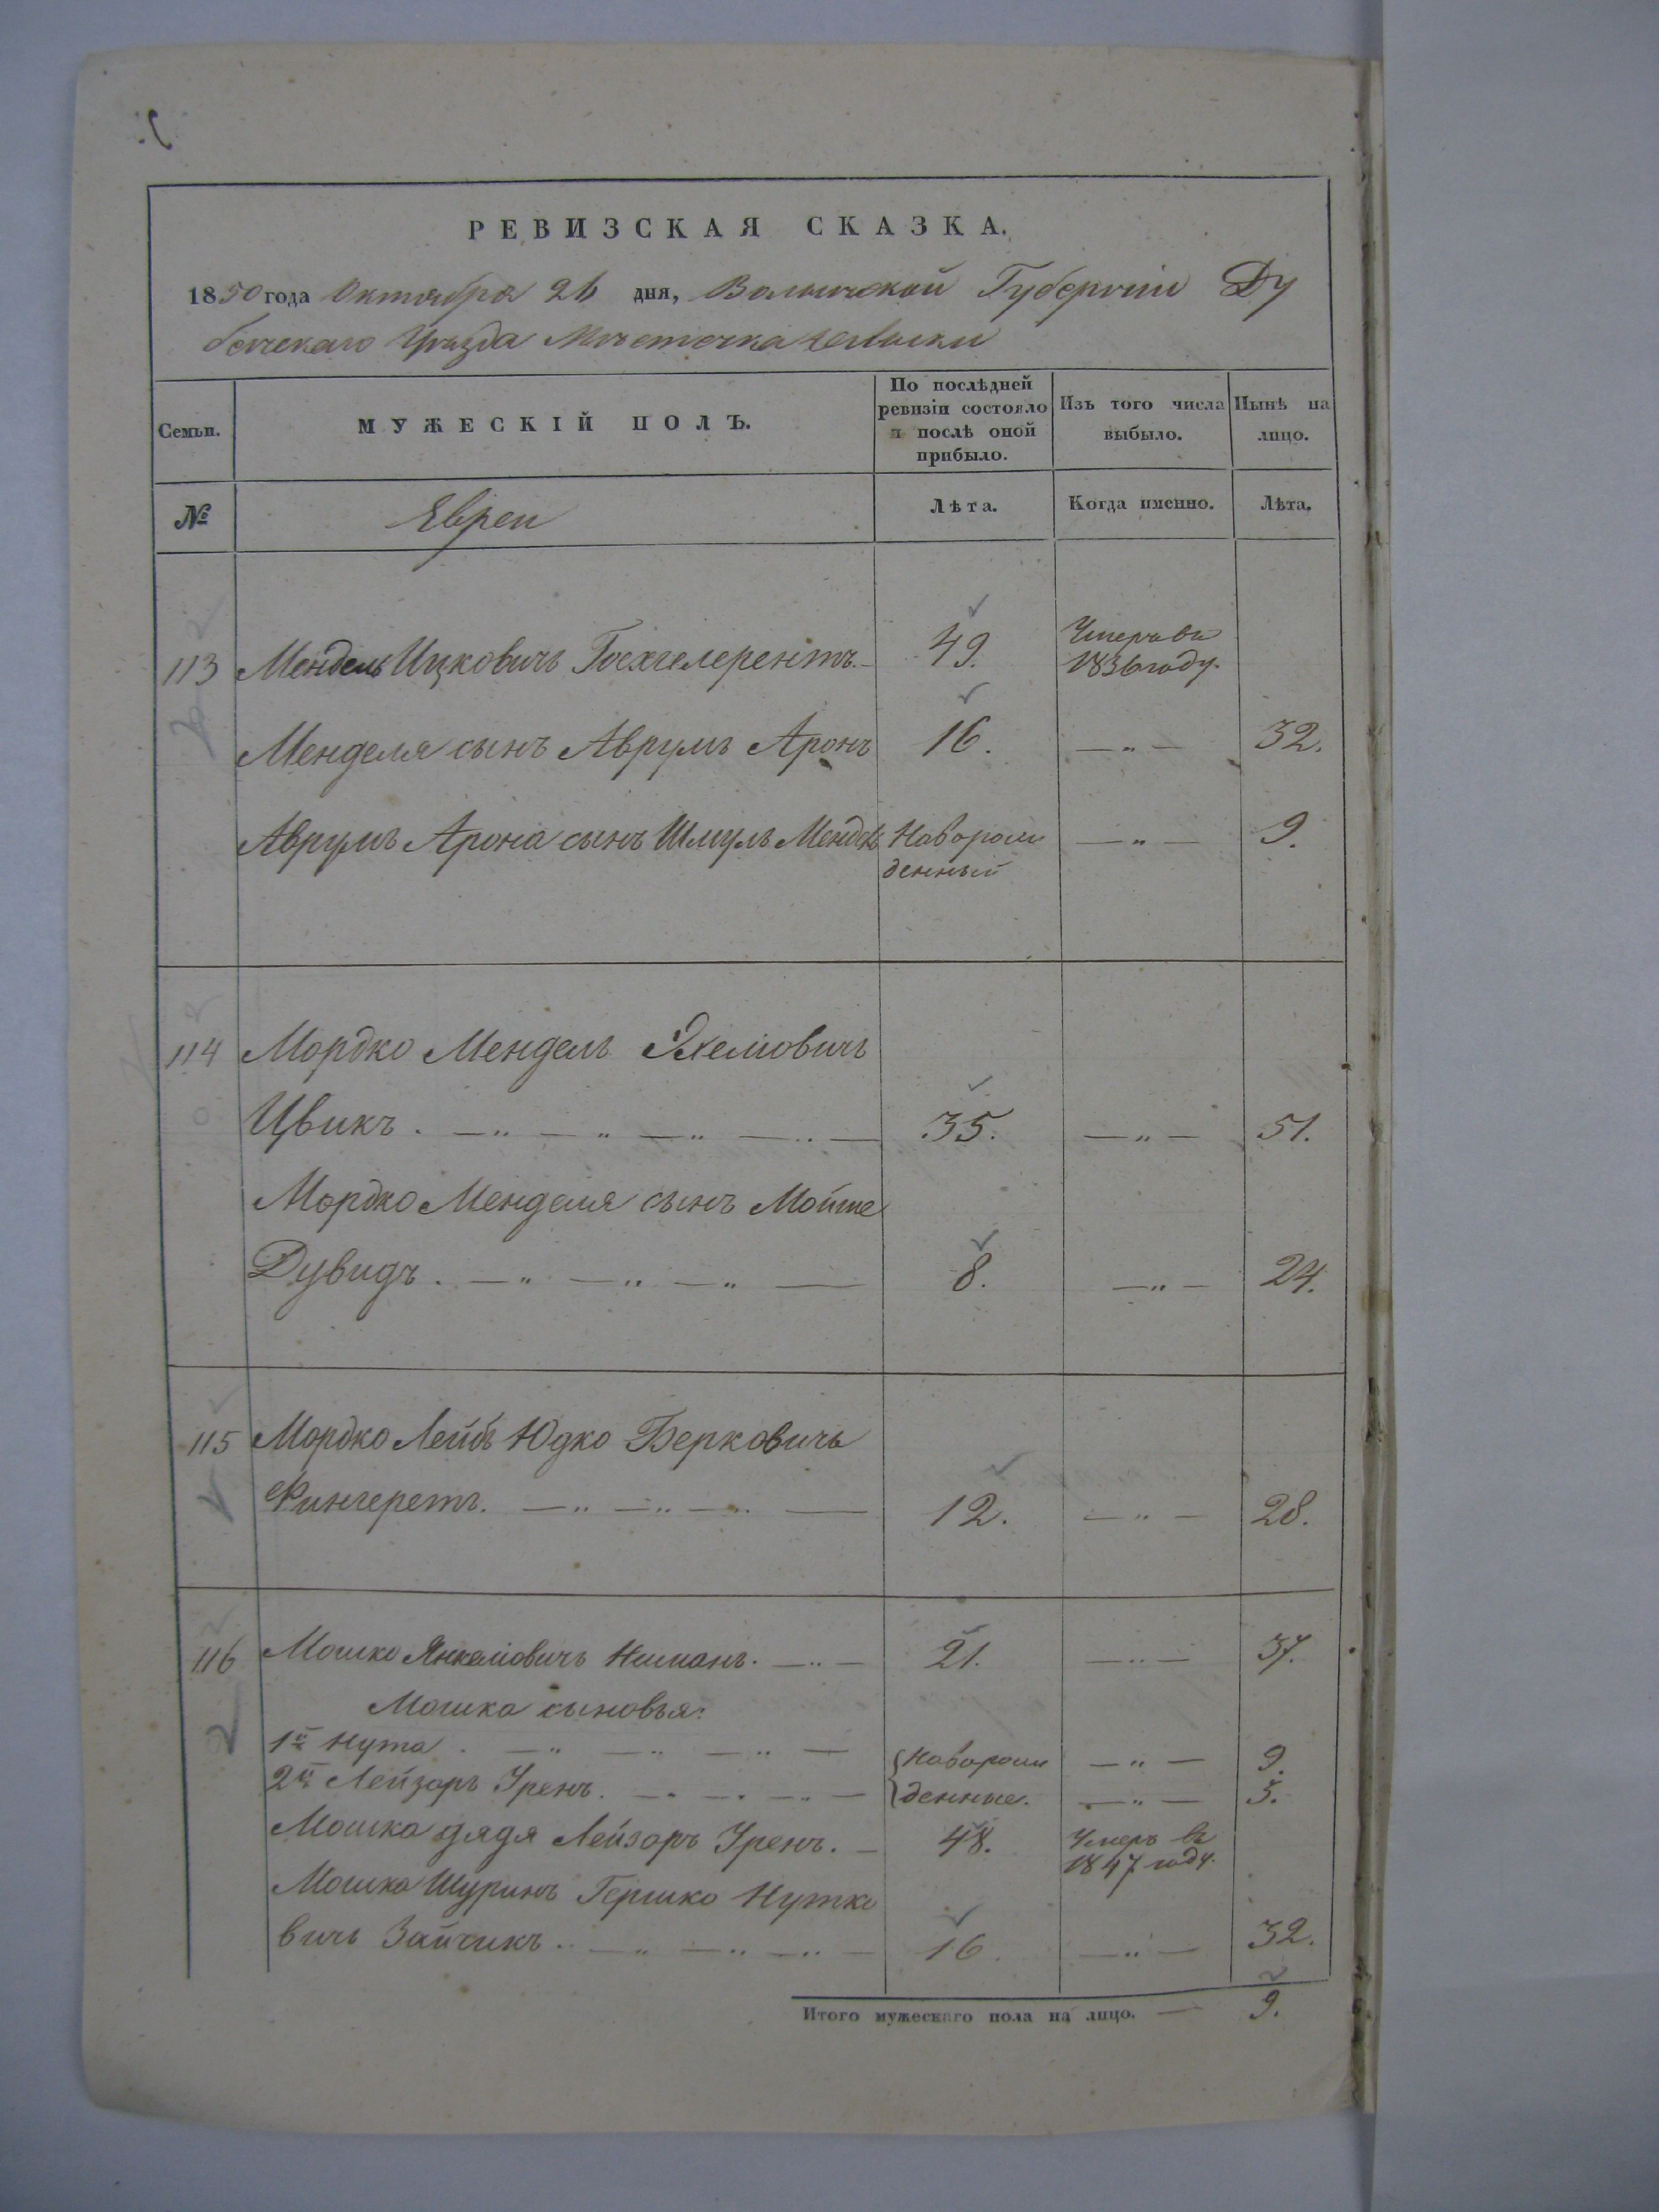 РЕВИЗСКАЯ СКАЗКА.
1850 года Октября 26 дня, Волынской Губернии Ду
бенскаго Уезда Местечка
Семьи.
МУЖЕСКІЙ ПОЛЪ.
По послѣдней ревизіи состояло и послѣ оной прибыло.
Изъ того числа выбыло.
Нынѣ на лицо.
№
Евреи
Лѣта.
Когда именно.
Лѣта.
113 Мендель Ицковичъ 49. Умеръ въ 1836 году.
Менделя сынъ Аврумъ Аронъ 16. —„— 32.
Аврумъ Арона сынъ Шмуль Мендель Новорож
денный —„— 9.
114 Мордко Мендель Хемiовичъ
Цвикъ. —„—„—„—„— 35. —„— 51.
Мордко Менделя сынъ Мойше
Дувидъ. —„—„—„— 8. —„— 24.
115 Мордко Лейбъ Юдко Берковичъ
Фингеретъ. —„—„—„— 12. —„— 28.
116 Мошко Янкелiовичъ Ниманъ. —„— 21. —„— 37.
Мошка сыновья:
1й Нута. —„—„—„— {Новорож —„— 9.
2й Лейзоръ Уренъ. —„—„—„— денные. —„— 5.
Мошка дядя Лейзоръ Уренъ. — 48. Умеръ въ 1847 году.
Мошка Шуринъ Гершко Нутко
вичъ Зайчикъ. —„—„—„— 16. —„— 32.
Итого мужескаго пола на лицо. — 9.